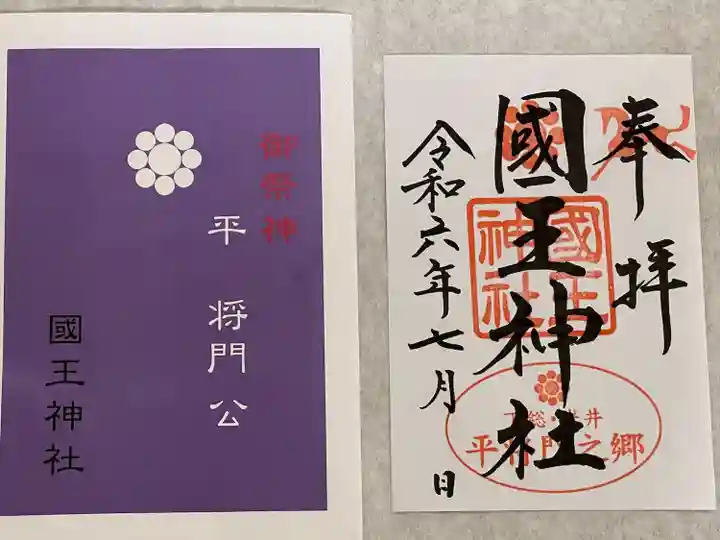 御祭神
平 将門 公
國王神社
奉拝
國王神社
令和六年七月 日
國王
神社
平将門之郷